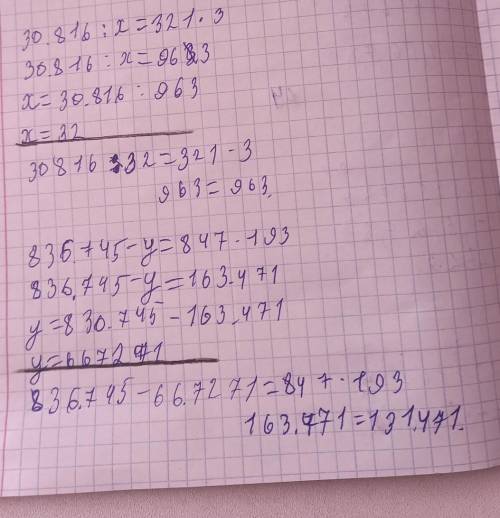 30.816 : x = 321 · 3
30.816 : x = 963
x = 30.816 : 963
x = 32
30816 : 32 = 321 · 3
963 = 963.
836.745 - y = 847 · 193
836.745 - y = 163.471
y = 830.745 - 163.471
y = 667271
836.745 - 66.7271 = 847 · 193
163.471 = 131.471.